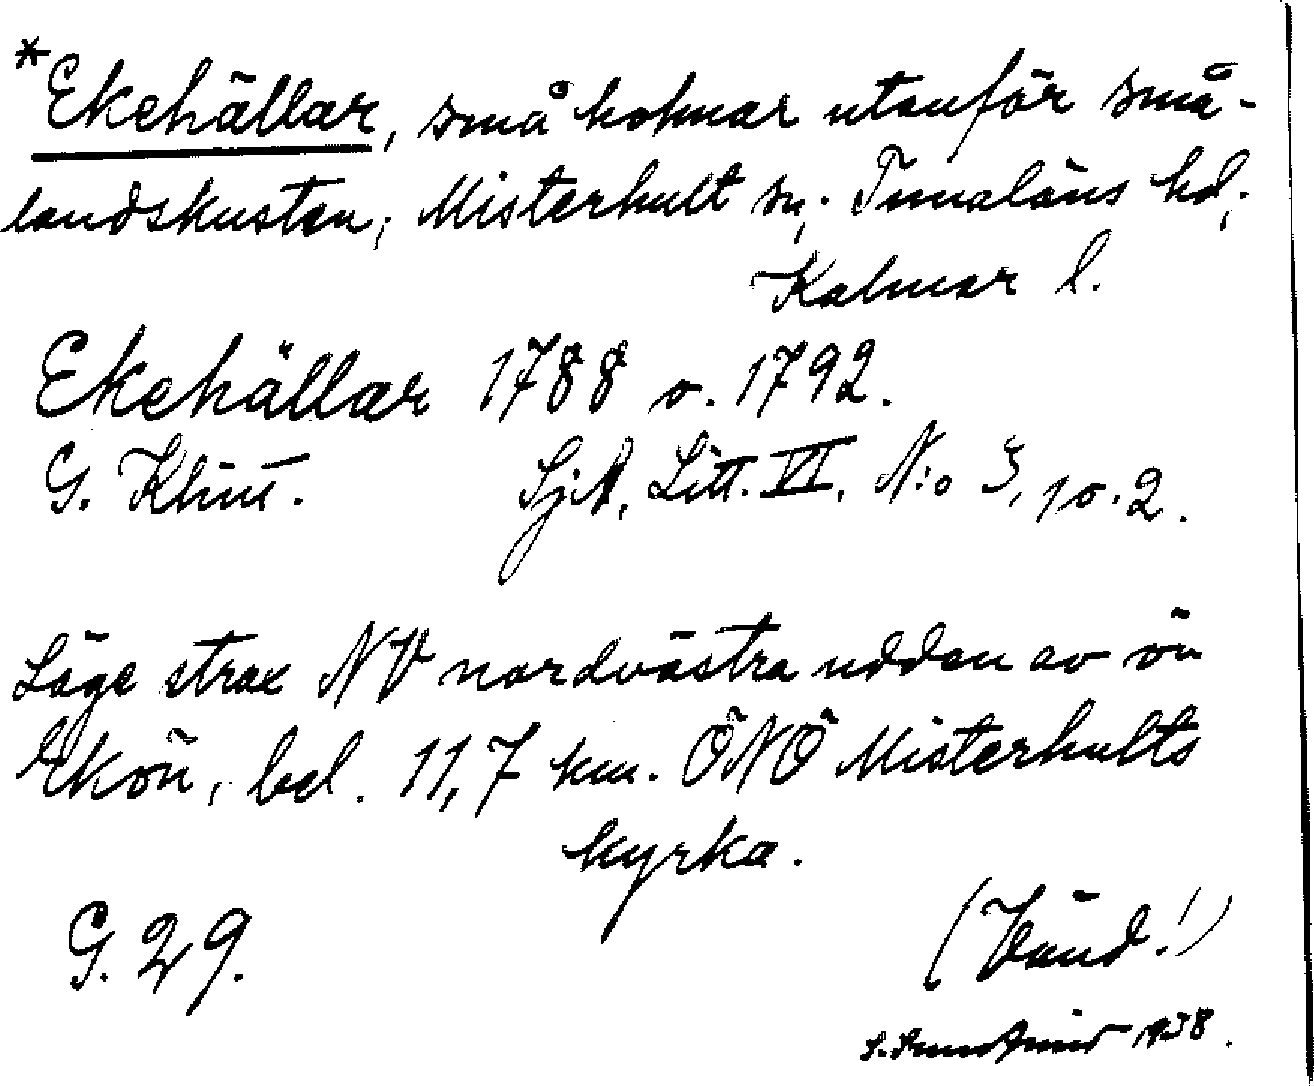 *Ekehällar, små holmar utanför små-
landskusten, Misterhult sn, Tunaläns hd,
Kalmar l.
Ekehällar 1788 o. 1792.
G. Klint. SjA, Litt. VI, N:o 3, 10.2.
Läge strax NV nordvästra udden av ön
Ekön, bel. 11,7 km. ÖNÖ Misterhults
kyrka.
G. 29. (Vänd!)
1938.